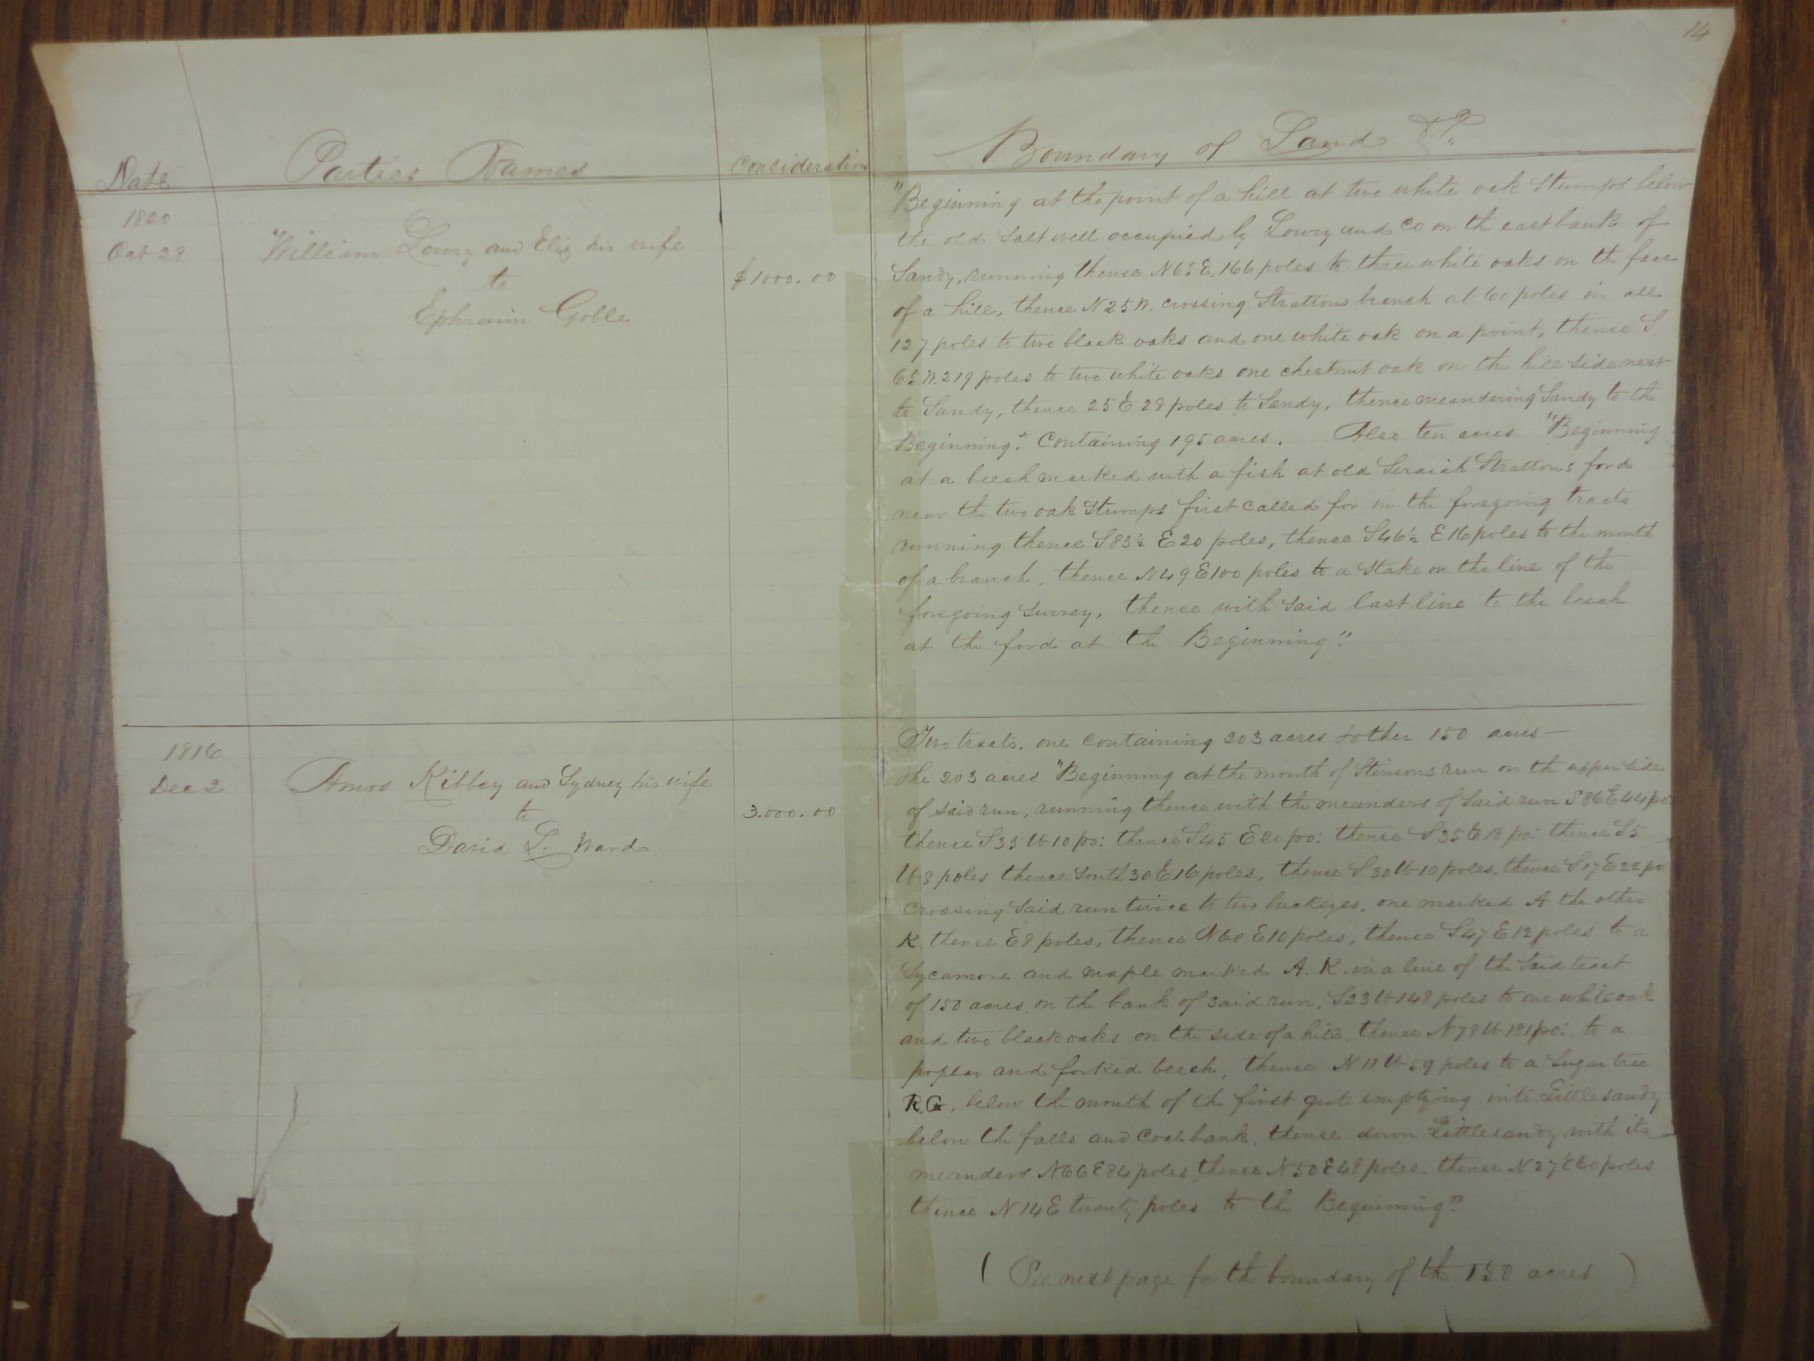 14
Date
Parties Names
Consideration
Boundary of Land &c.
1820
Oct 28
William Lowry and Eliz his wife
to
Ephraim Goble
$1000.00
"Beginning at the point of a hill at two white oak stumps below
the old Salt well occupied by Lowry and Co on the east bank of
Sandy, running thence N65E. 166 poles to three white oaks on the face
of a hill, thence N25W. crossing Strattons branch at 60 poles in all
127 poles to two black oaks and one white oak on a point, thence S
65W. 219 poles to two white oaks one chestnut oak on the hill side next
to Sandy, thence 25E 28 poles to Sandy, thence meandering Sandy to the
Beginning". Containing 195 acres. Also ten acres "Beginning
at a beech marked with a fish at old Stratton's ford
near the two oak stumps first called for in the foregoing tracts
running thence S83½ E20 poles, thence S46½ E16 poles to the mouth
of a branch, thence N49E100 poles to a stake on the line of the
foregoing survey, thence with said last line to the beech
at the ford at the Beginning".
1816
Dec 2
Amos Kibbey and Sydney his wife
to
David L. Ward
3.000.00
Two tracts, one containing 203 acres & other 150 acres—
The 203 acres "Beginning at the mouth of Stinsons run on the upper side
of said run, running thence with the meanders of said run S86E44po
thence S35W10po: thence S45E20po: thence S35E18po: thence S5
W8 poles thence South30E16poles, thence S30W10poles, thence S17E22po
crossing said run twice to two buckeyes, one marked A the other
K, thence E8 poles, thence N60E10poles, thence S47E12poles to a
Sycamore and maple marked A. K. in a line of the said tract
of 150 acres, on the bank of said run, S23W148 poles to one white oak
and two black oaks on the side of a hill, thence N78W181po: to a
poplar and forked beech, thence N11W59 poles to a Sugar tree
R.G. below the mouth of the first gut emptying into Little sandy
below the falls and coal bank, thence down Little sandy with its
meanders N66E84poles, thence N50E48poles, thence N27E60poles
thence N14E twenty poles to the Beginning"
(See next page for the boundary of the 150 acres)